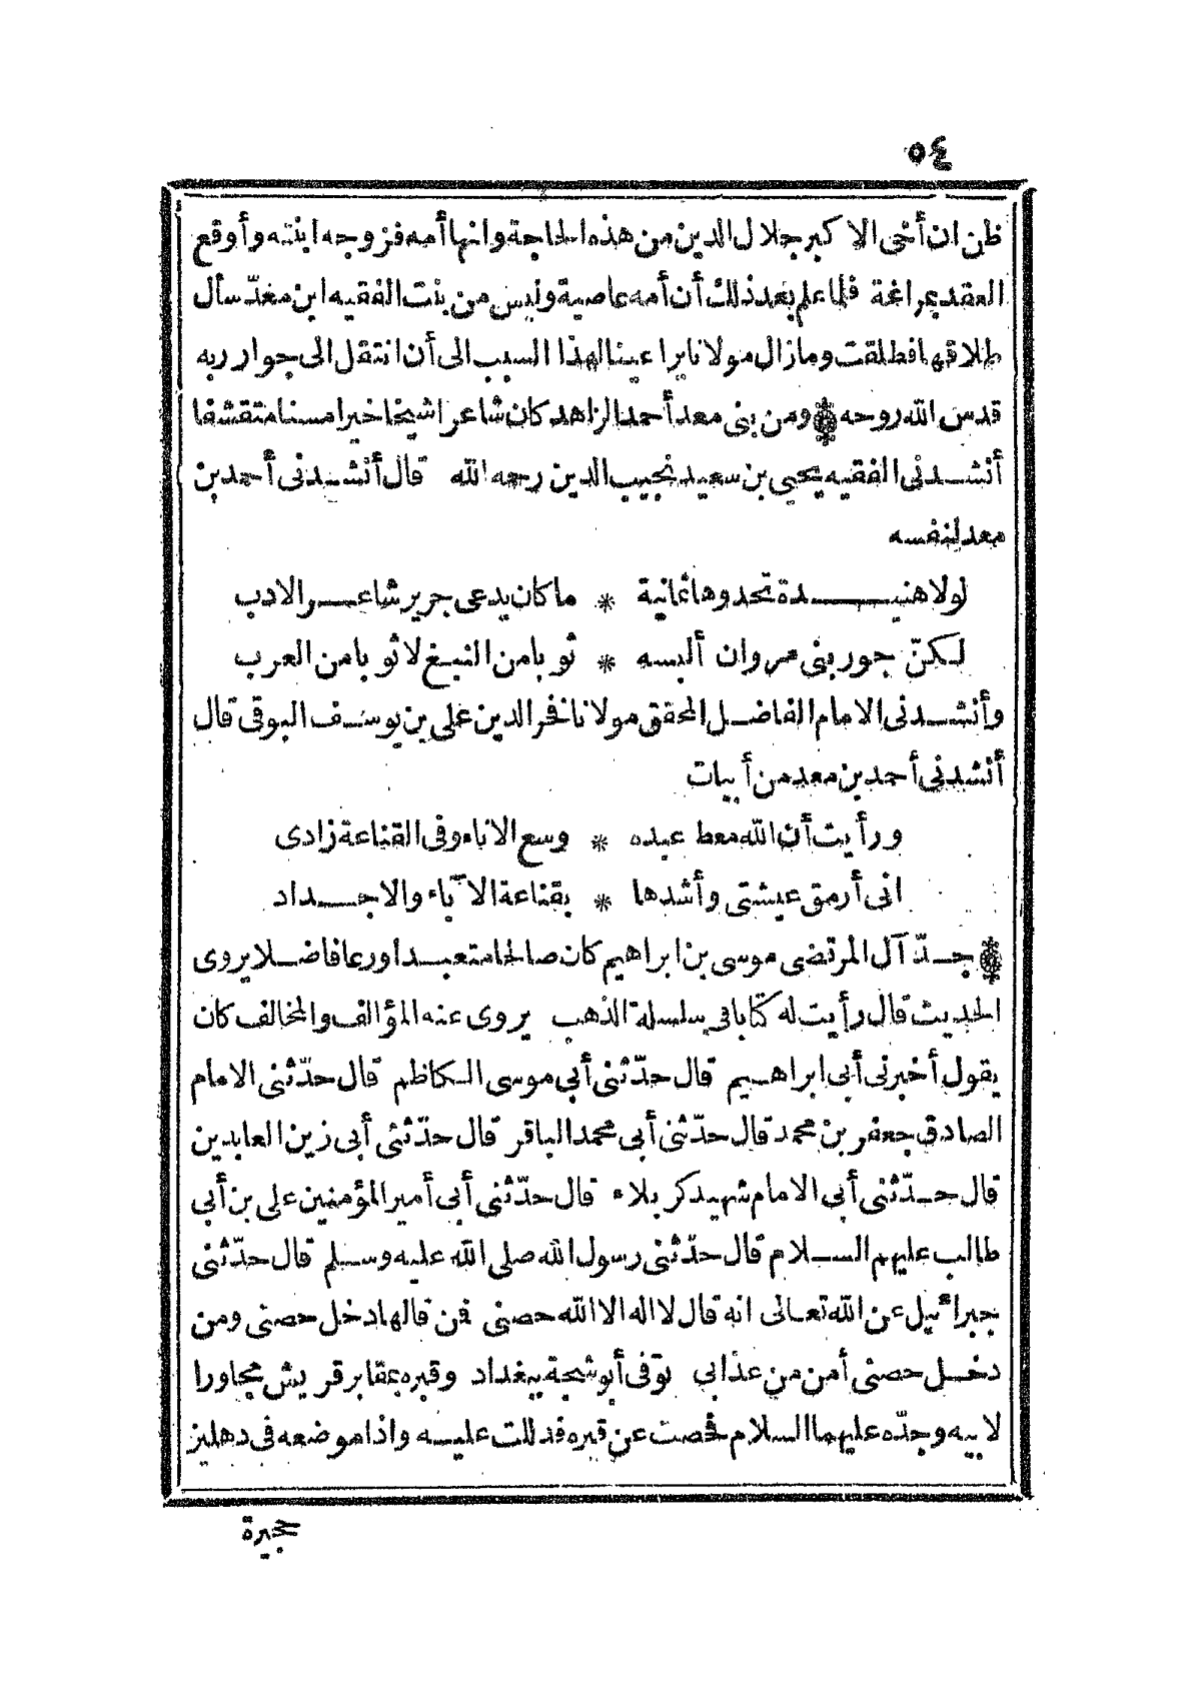 ٥٤
ظن ان أخى الاكبر جلال الدين من هذه الحاجة وانها أمه فزوجه ابنته وأوقع
العقد بمراغة فلما علم بعد ذلك أن أمه عاصية وليس من بنت الفقيه ابن معدّ سأل
طلاقها فطلقت وما زال مولانا يراعينا لهذا السبب الى أن انتقل الى جوار ربه
قدس الله روحه ومن بنى معد أحمد الزاهد كان شاعرا شيخا خيرا مسنا متقشفا
أنشدنى الفقيه يحيى بن سعيد نجيب الدين رحمه الله قال أنشدنى أحمد بن
معد لنفسه
لولا هنيدة تحدوها ثمانية * ما كان يدعى جرير شاعر الادب
لكنّ جور بنى مروان ألبسه * ثوبا من النبغ لا ثوبا من العرب
وأنشدنى الامام الفاضل المحقق مولانا فخر الدين على بن يوسف البوقى قال
أنشدنى أحمد بن معد من أبيات
ورأيت أن الله معط عبده * وسع الاناء وفى القناعة زادى
انى أرمق عيشتى وأشدها * بقناعة الآباء والاجداد
جدّ آل المرتضى موسى بن ابراهيم كان صالحا متعبدا ورعا فاضلا يروى
الحديث قال رأيت له كتابا فى سلسلة الذهب يروى عنه المؤالف والمخالف كان
يقول أخبرنى أبى ابراهيم قال حدّثنى أبى موسى الكاظم قال حدّثنى الامام
الصادق جعفر بن محمد قال حدّثنى أبى محمد الباقر قال حدّثنى أبى زين العابدين
قال حدّثنى أبى الامام شهيد كربلاء قال حدّثنى أبى أمير المؤمنين على بن أبى
طالب عليهم السلام قال حدّثنى رسول الله صلى الله عليه وسلم قال حدّثنى
جبرائيل عن الله تعالى انه قال لا اله الا الله حصنى فمن قالها دخل حصنى ومن
دخل حصنى أمن من عذابى توفى أبو شجة ببغداد وقبره بمقابر قريش مجاورا
لابيه وجدّه عليهما السلام فحصت عن قبره فدللت عليه واذا موضعه فى دهليز
حجيرة